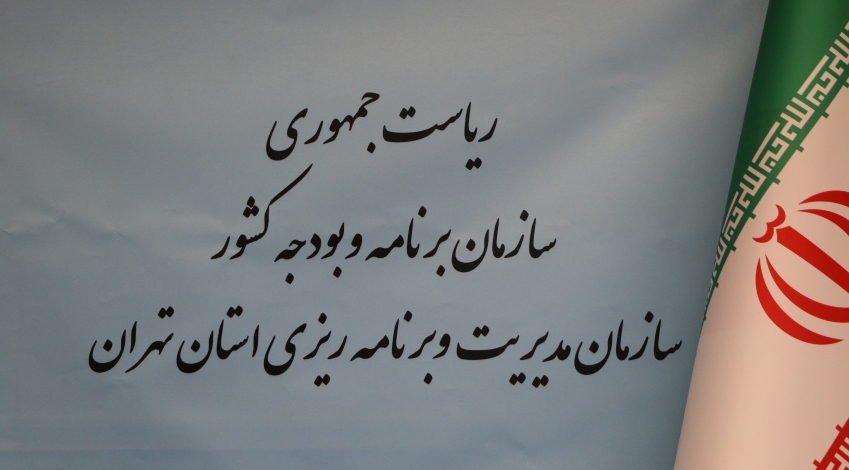 ریاست جمهوری
سازمان برنامه و بودجه کشور
سازمان مدیریت و برنامه ریزی استان تهران